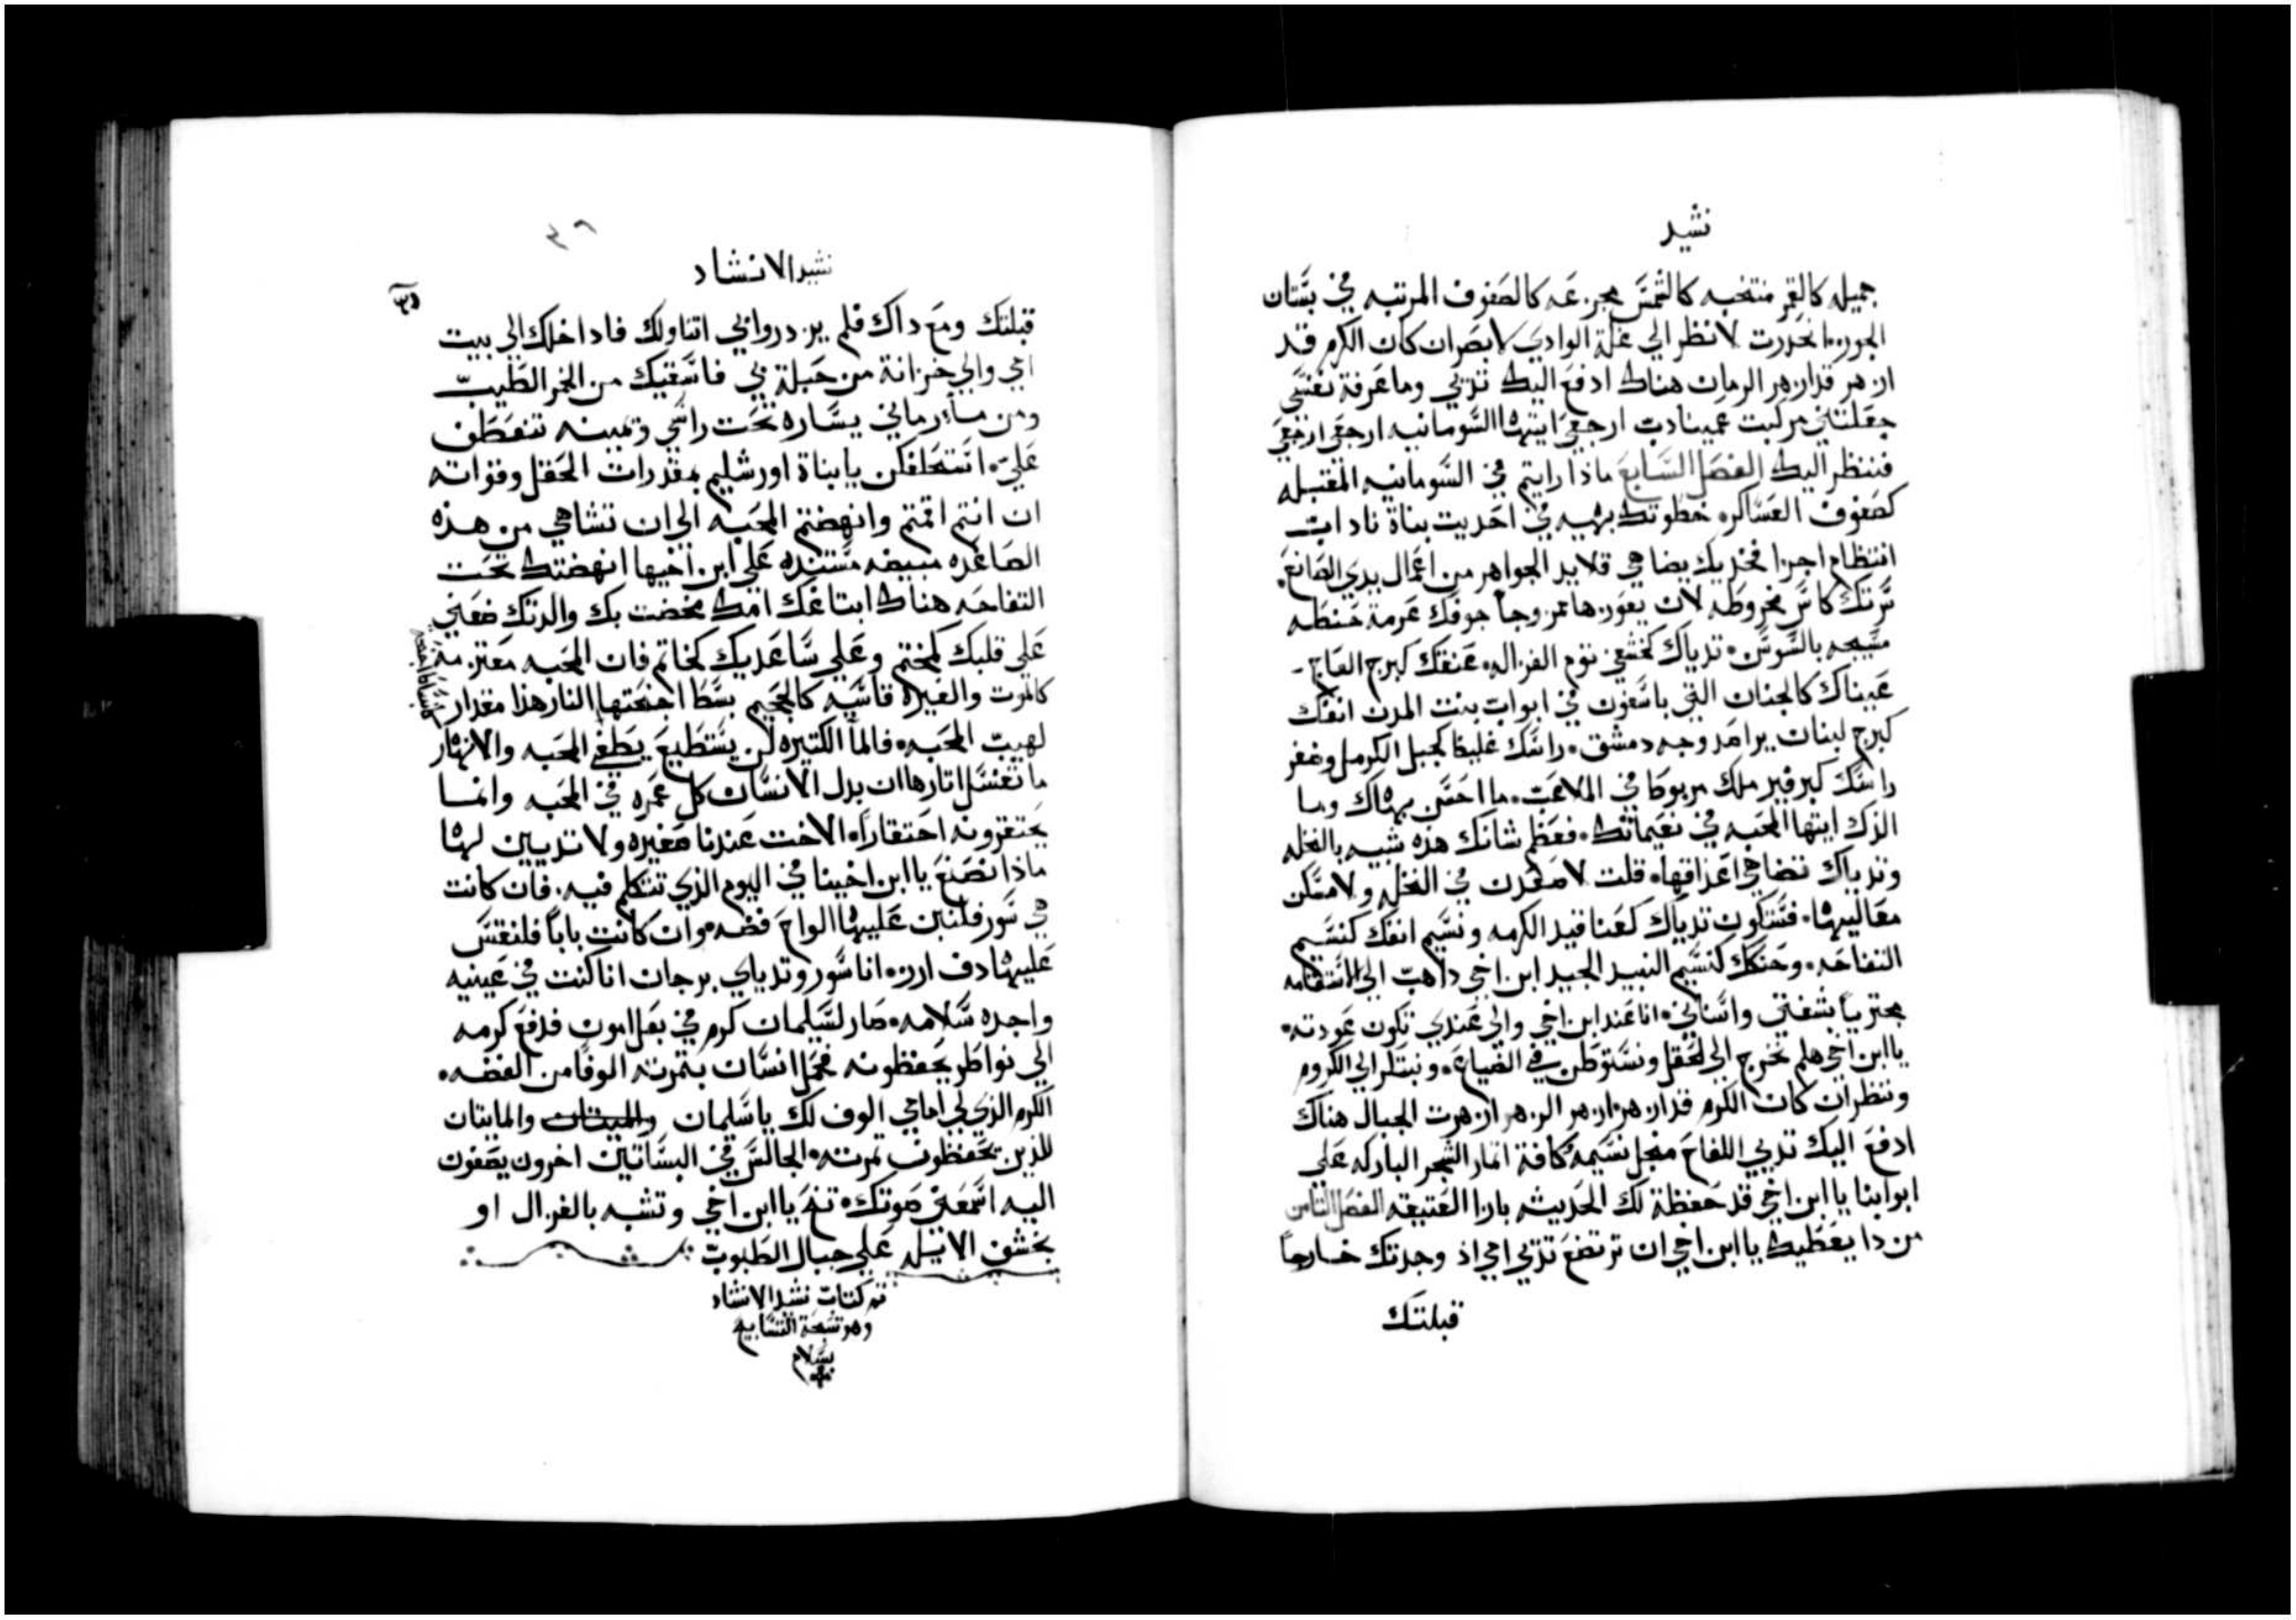 نشيد
جميله كالقمر منتخبه كالشمس مجزعه كالصفوف المرتبه في بستان
الجوز انحدرت لانظر الي غلة الوادي لابصر ان كان الكرم قد
ازهر قد ازهر الرمان هناك ادفع اليك تديي وما عرفة نفسي
جعلتني مركبت عميناداب ارجعي ايتها السومانيه ارجعي ارجعي
فننظر اليك الفصل السابع ماذا رايتم في السومانيه المقبله
كصفوف العساكر خطوتك بهيه في احديت بناة ناداب
انتظام اجزا فخديك يضاهي قلايد الجواهر من اعمال يدي الصانع
سرتك كاس مخروطه لان يعوزها ممزوجاً جوفك عرمة حنطه
مسيجه بالسوسن تدياك كخشفي توم الغزاله عنقك كبرج العاج
عيناك كالجنان التي باشعون في ابواب بنت المدن انفك
كبرج لبنان يراصد وجه دمشق راسك عليك كجبل الكرمل وضفر
راسك كبرفير ملك مربوطا في الملاعب ما احسن بهاك وما
الذك ايتها المحبه في نعيماتك فعظم شانك هذه شبيه بالنخله
وتدياك تضاهي اعذاقها قلت لاصعدن في النخل ولامسكن
معاليها فستكون تدياك كعناقيد الكرمه ونسيم انفك كنسيم
التفاحه وحنكك كنسيم النبيد الجيد ابن اخي داهب الي الاستقامه
مجتزيا بشفتي واسناني انا عند ابن اخي والي عندي تكون عودته
يا ابن اخي هلم نخرج الي الحقل ونستوطن في الضياع ونبتكر الي الكروم
وننظر ان كان الكرم قد ازهر ازهر الزهر ازهرت الجبال هناك
ادفع اليك تديي اللفاح منجل نسيمه كافة اتمار الشجر المباركه علي
ابوابنا يا ابن اخي قد حفظة لك الحديته بازا العتيقه الفصل التامن
من دا يعطيك يا ابن اخي ان ترتضع تديي امي اذ وجدتك خارجاً
قبلتك
٣٦
نشيد الانشاد
قبلتك ومع داك فلم يزدروا بي اتناولك فاداخلك الي بيت
امي والي خزانة من حبلة بي فاسقيك من الخمر الطيب
ومن ماء رماني يساره تحت راسي ويمينه تنعطف
علي استحلفكن يا بناة اورشليم بمقدرات الحقل وقواته
ان انتم اقمتم وانهضتم المحبه الي ان تشاهي من هذه
الصاعده مبيضه مستنده علي ابن اخيها انهضتك تحت
التفاحه هناك ابتاعك امك مخضت بك والدتك ضعني
علي قلبك كمختم وعلي ساعديك كخاتم فان المحبه معتزمه
كالموت والغيره قاسيه كالجحيم بسط اجنحتها النار هذا مقدار
لهيب المحبه فالما الكتيره لن يستطيع يطفي المحبه والانهار
ما تغسل اتارها ان بدل الانسان كل عمره في المحبه وانما
يحتقرونه احتقاراً الاخت عندنا صغيره ولا تديين لها
ماذا نصنع يا ابن اخينا في اليوم الذي تتكلم فيه فان كانت
هي سور فلنبن عليها الواح فضه وان كانت باباً فلننقش
عليها دف ارز انا سور وتدياي برجان انا كنت في عينيه
واجده سلامه صار لسليمان كرم في بعل امون فدفع كرمه
الي نواطر يحفظونه فحمل انسان بتمرته الوفا من الفضه
الكرم الذي لي امامي الوف لك يا سليمان والميتان والمايتان
للذين يحفظون تمرته الجالس في البساتين اخرون يصغون
اليه اسمعني صوتك تنح يا ابن اخي وتشبه بالغزال او
بخشف الايله علي جبال الطيوب
تم كتاب نشيد الانشاد
وهو تسبحة التسابيح
بسلام